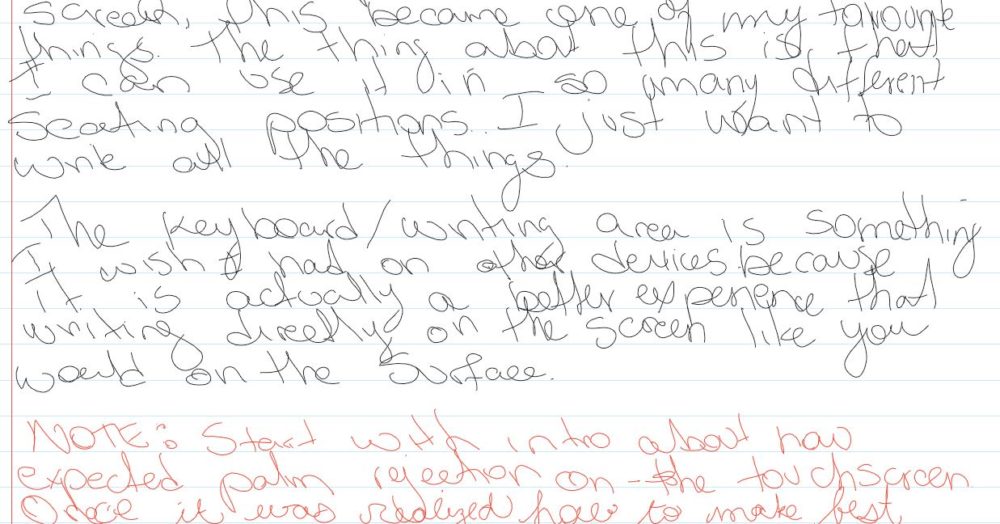 screen, this became one of my favourite
things. The thing about this is, that
I can use it in so many different
seating positions. I just want to
write all the things.
The keyboard/writing area is something
I wish I had on other devices because
it is actually a better experience that
writing directly on the screen like you
would on the Surface.
NOTE: Start with intro about how
expected palm rejection on the touchscreen
Once it was realized how to make best